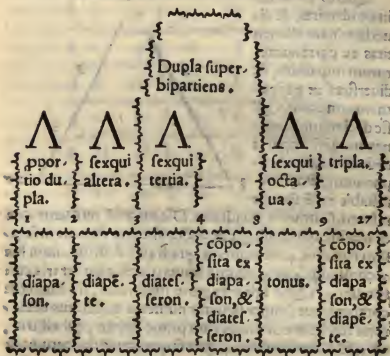 Dupla ſuper-
bipartiens.
ꝓpor-
tio du-
pla.
ſexqui
altera.
ſexqui
tertia.
ſexqui
octa-
ua.
tripla.
1 2 3 4 8 9 27
diapa-
ſon.
diapē-
te.
diateſ-
ſeron.
cōpo-
ſita ex
diapa-
ſon, &
diateſ-
ſeron.
tonus.
cōpo-
ſita ex
diapa-
ſon, &
diapē-
te.